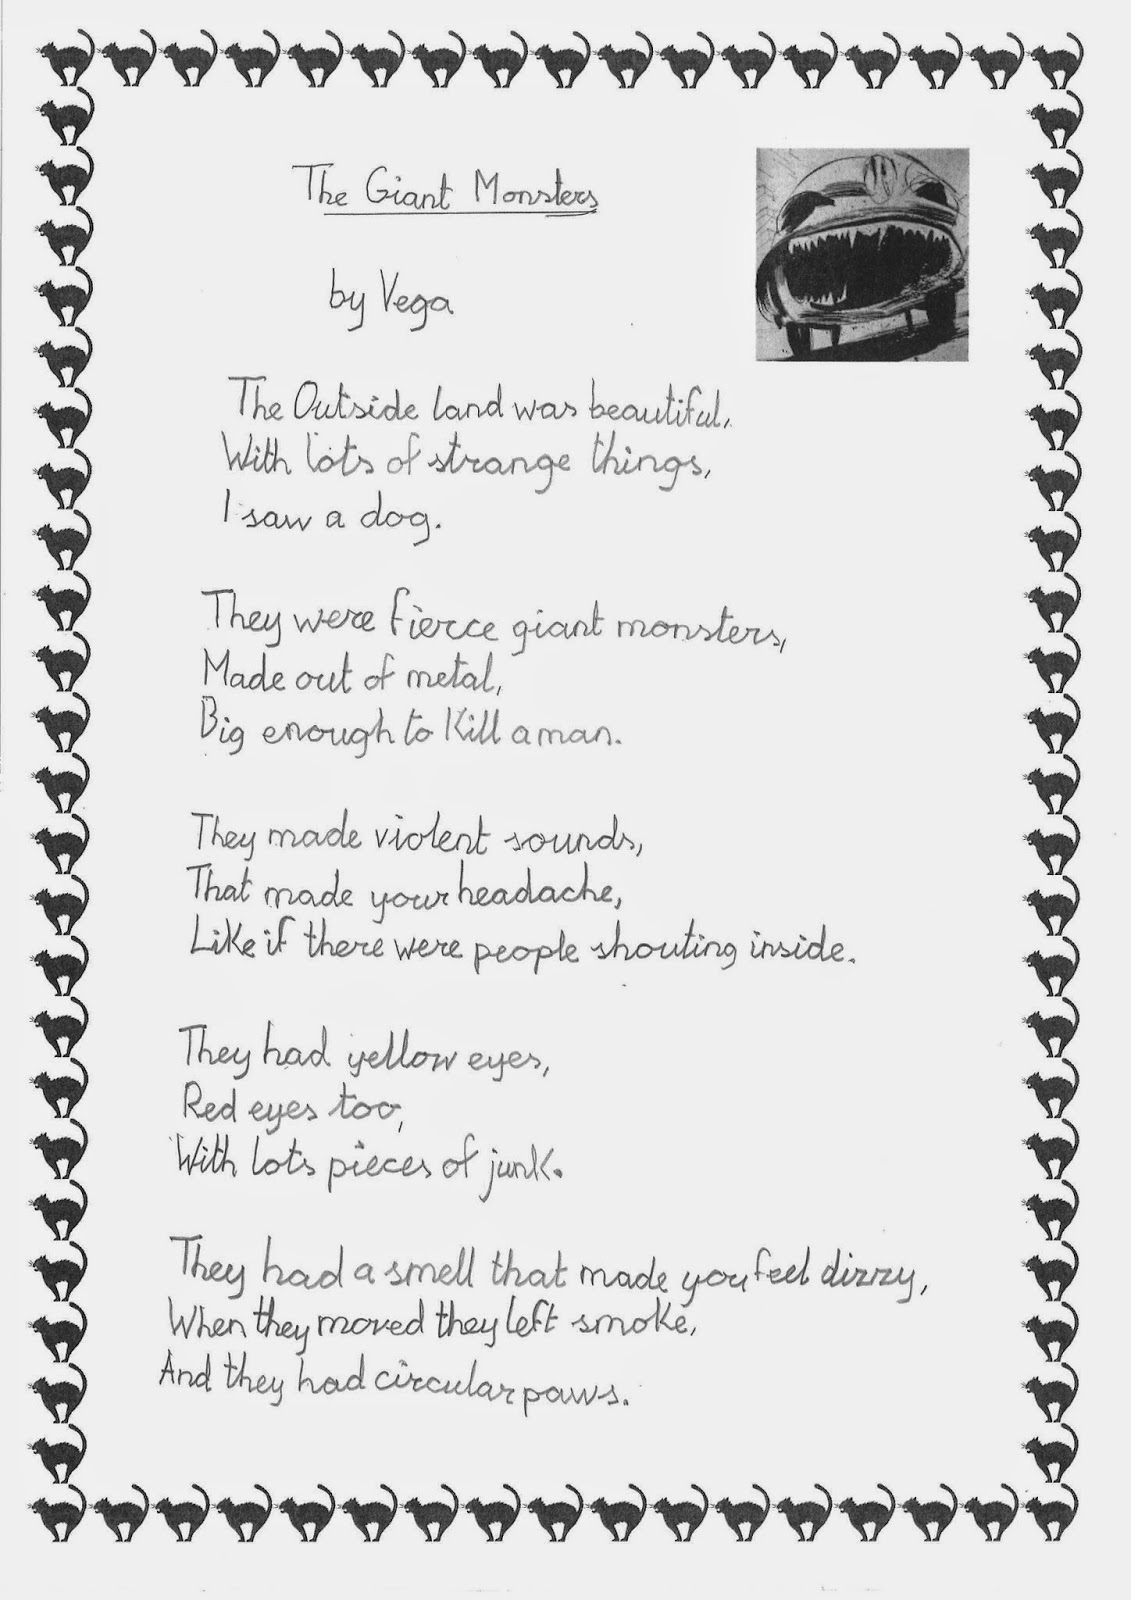 The Giant Monsters
by Vega
The Outside land was beautiful,
With lots of strange things,
I saw a dog.
They were fierce giant monsters,
Made out of metal,
Big enough to Kill a man.
They made violent sounds,
That made your headache,
Like if there were people shouting inside.
They had yellow eyes,
Red eyes too,
With lots pieces of junk.
They had a smell that made you feel dizzy,
When they moved they left smoke,
And they had circular paws.